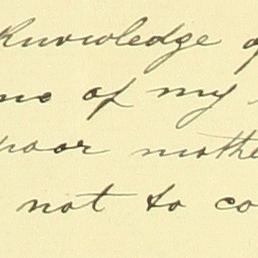 Knowledge of
me of my
poor mothe
not to co